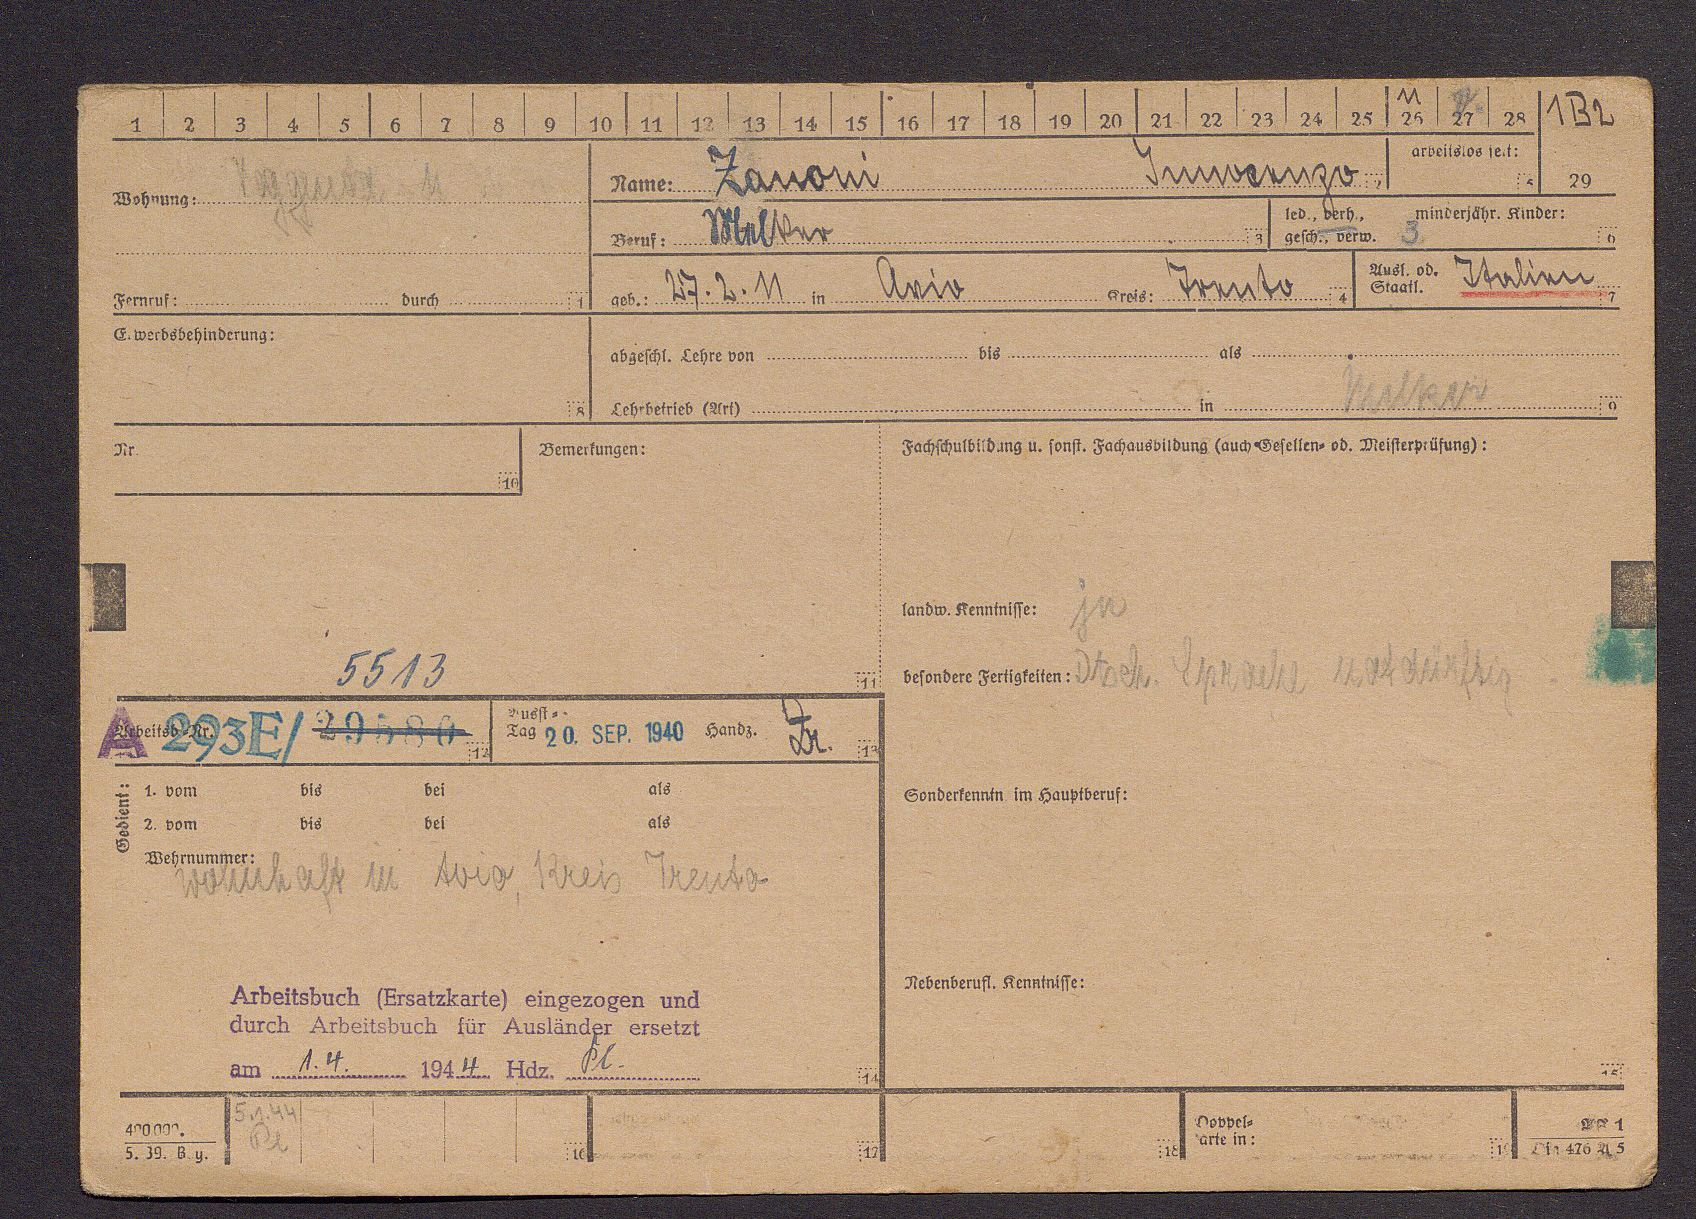 1 2 3 4 5 6 7 8 9 10 11 12 13 14 15 16 17 18 19 20 21 22 23 24 25 26 27 28 1B2
11
arbeitslos seit:
5 29
Wohnung:
Name: Zanoni Innocenzo 2
Beruf: Melker 3
led., verh., minderjähr. Kinder:
gesch., verw. 3 6
Fernruf: durch 1
geb.: 27.2.11 in Avio Kreis: Trento 4
Ausl. od. Italien
Staatl. 7
E.werbsbehinderung:
8
abgeschl. Lehre von bis als
Melker
Lehrbetrieb (Art) in 9
Nr.
10
Bemerkungen:
5513
11
Fachschulbildung u. sonst. Fachausbildung (auch Gesellen- od. Meisterprüfung):
landw. Kenntnisse: ja
besondere Fertigkeiten: Dtsch. Sprache notdürftig
A Arbeitsb.-Nr. 293E/ 29580 12
Ausst.-
Tag 20. SEP. 1940 Handz. 13
Gedient:
1. vom bis bei als
2. vom bis bei als
Wehrnummer:
wohnhaft in Avio, Kreis Trento
Sonderkenntn im Hauptberuf:
Nebenberufl. Kenntnisse:
Arbeitsbuch (Ersatzkarte) eingezogen und
durch Arbeitsbuch für Ausländer ersetzt
am 1.4. 1944 Hdz. Pl.
14
15
400000.
5. 39. B.y.
5.1.44
Pl
16 17 18
Doppel-
arte in: 19
AA 1
Din 476 A 5